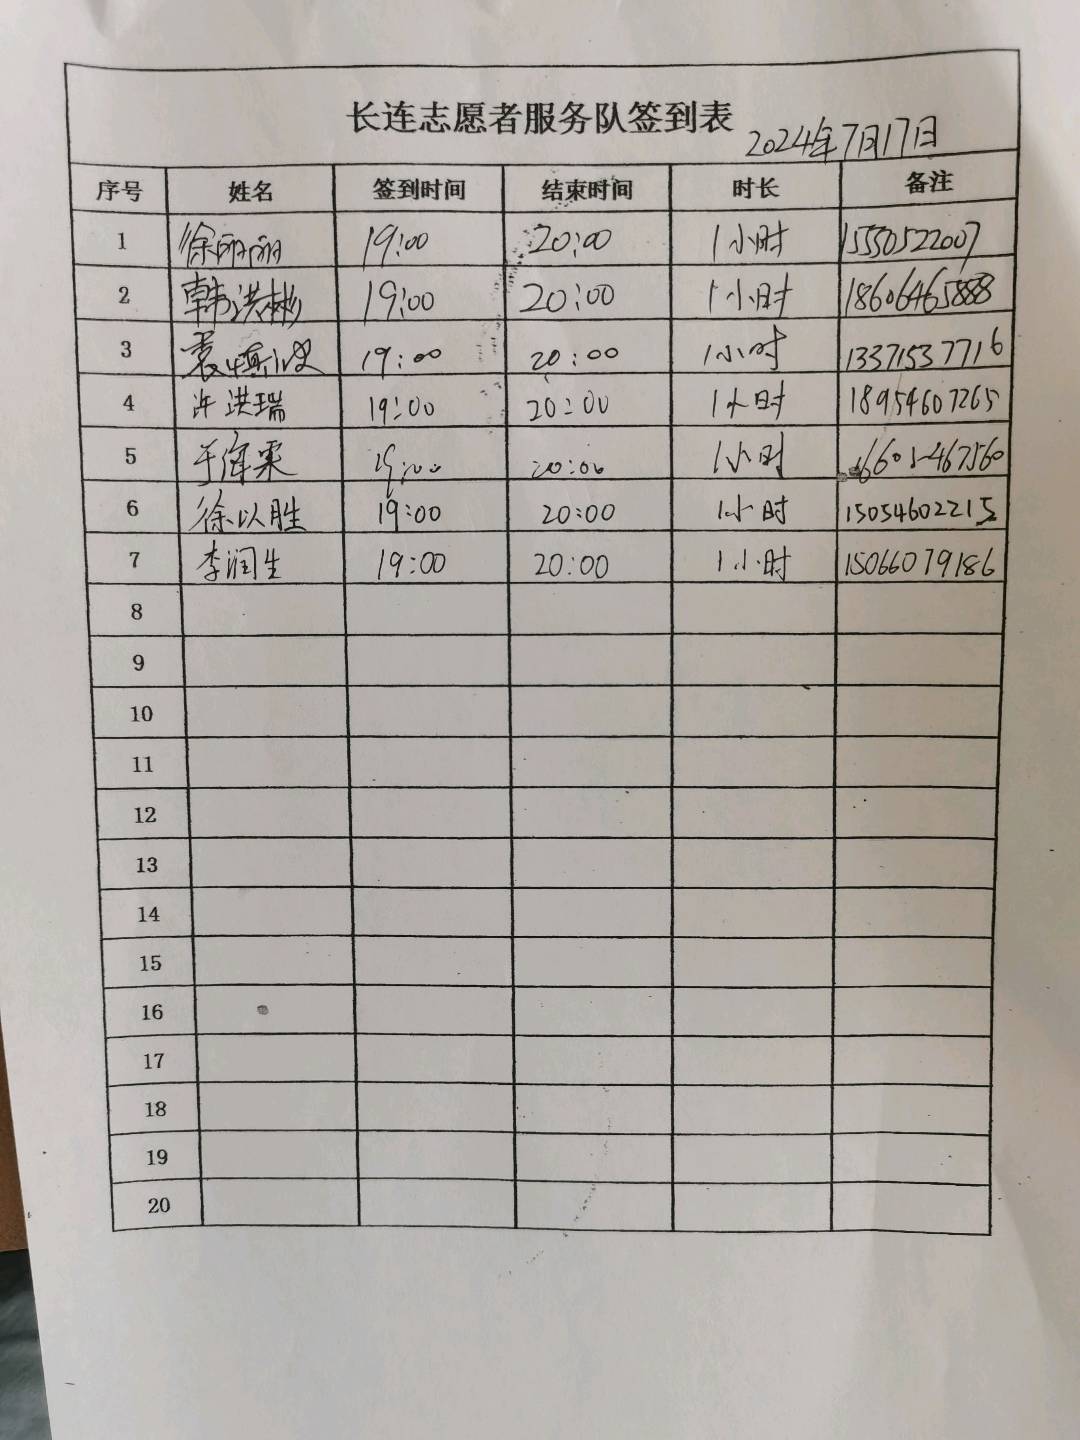 长连志愿者服务队签到表
2024年7月17日
序号 姓名 签到时间 结束时间 时长 备注
1 徐丽丽 19:00 20:00 1小时 15550522007
2 韩洪彬 19:00 20:00 1小时 18606465888
3 袁慎波 19:00 20:00 1小时 13371537716
4 许洪瑞 19:00 20:00 1小时 18954607265
5 19:00 20:00 1小时
6 徐以胜 19:00 20:00 1小时 15054602215
7 李润生 19:00 20:00 1小时 15066079186
8
9
10
11
12
13
14
15
16
17
18
19
20